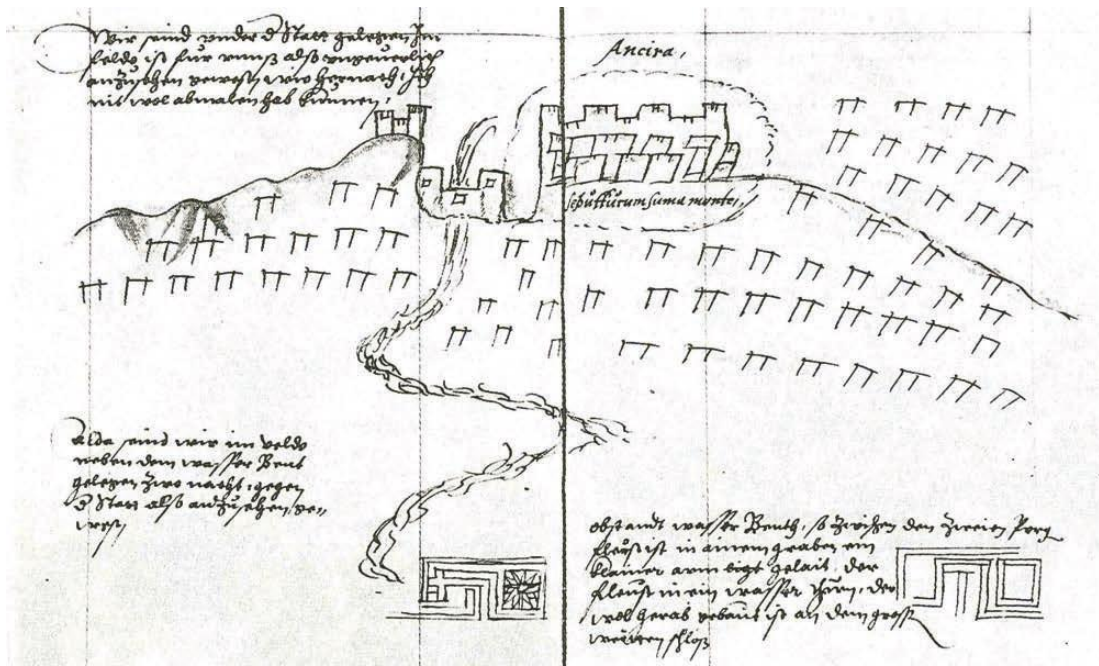 Wir seind vnder d Statt gelegen Im
feldt ist für vnnß also vngeuerlich
anzusehen gewest, wie hernach, Ich
nit wol abmalen hab künnen,
Ancira,
in sumo monte,
Alda seind wir im veldt
neben dem wasser Bent
gelegen zwo nacht, gegen
d Statt also anzusehen ge-
west,
obstandt wasser Benth, so zwischen den zweien Perg
fleüsst ist in ainem graben ein
klainer arm gelait, der
fleüsst in ein wasser thurn, der
wol herab gebaut ist an dem gross
schloß